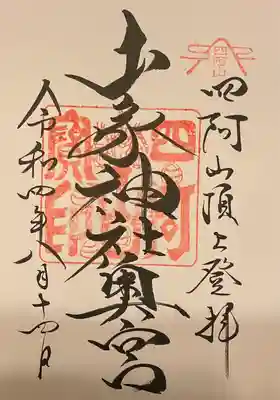 四阿山
四阿山頂上登拝
山家神社奥宮
令和四年八月十四日